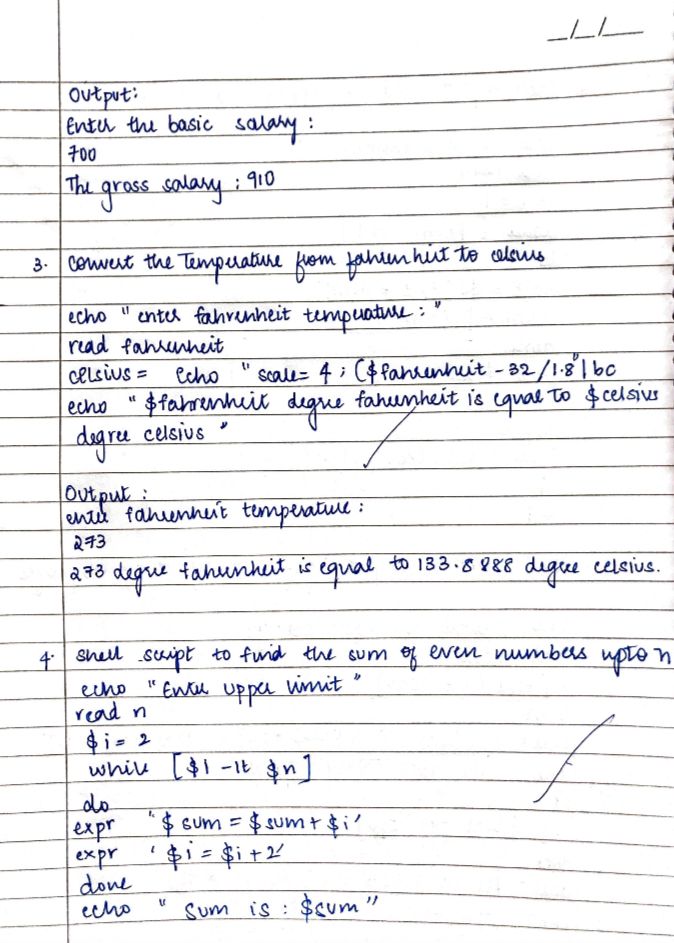 _/_/__
Output:
Enter the basic salary :
700
The gross salary : 910
3. Convert the Temperature from fahrenheit to celsius
echo " enter fahrenheit temperature : "
read fahrenheit
celsius = echo " scale = 4 ; ($fahrenheit - 32 /1.8" | bc
echo " $fahrenheit degree fahrenheit is equal to $celsius
degree celsius "
Output :
enter fahrenheit temperature :
273
273 degree fahrenheit is equal to 133.8888 degree celsius.
4. Shell script to find the sum of even numbers upto n
echo " Enter upper limit "
read n
$i = 2
while [$i -lt $n]
do
expr "$ sum = $sum + $i'
expr ' $i = $i + 2'
done
echo " sum is : $sum "